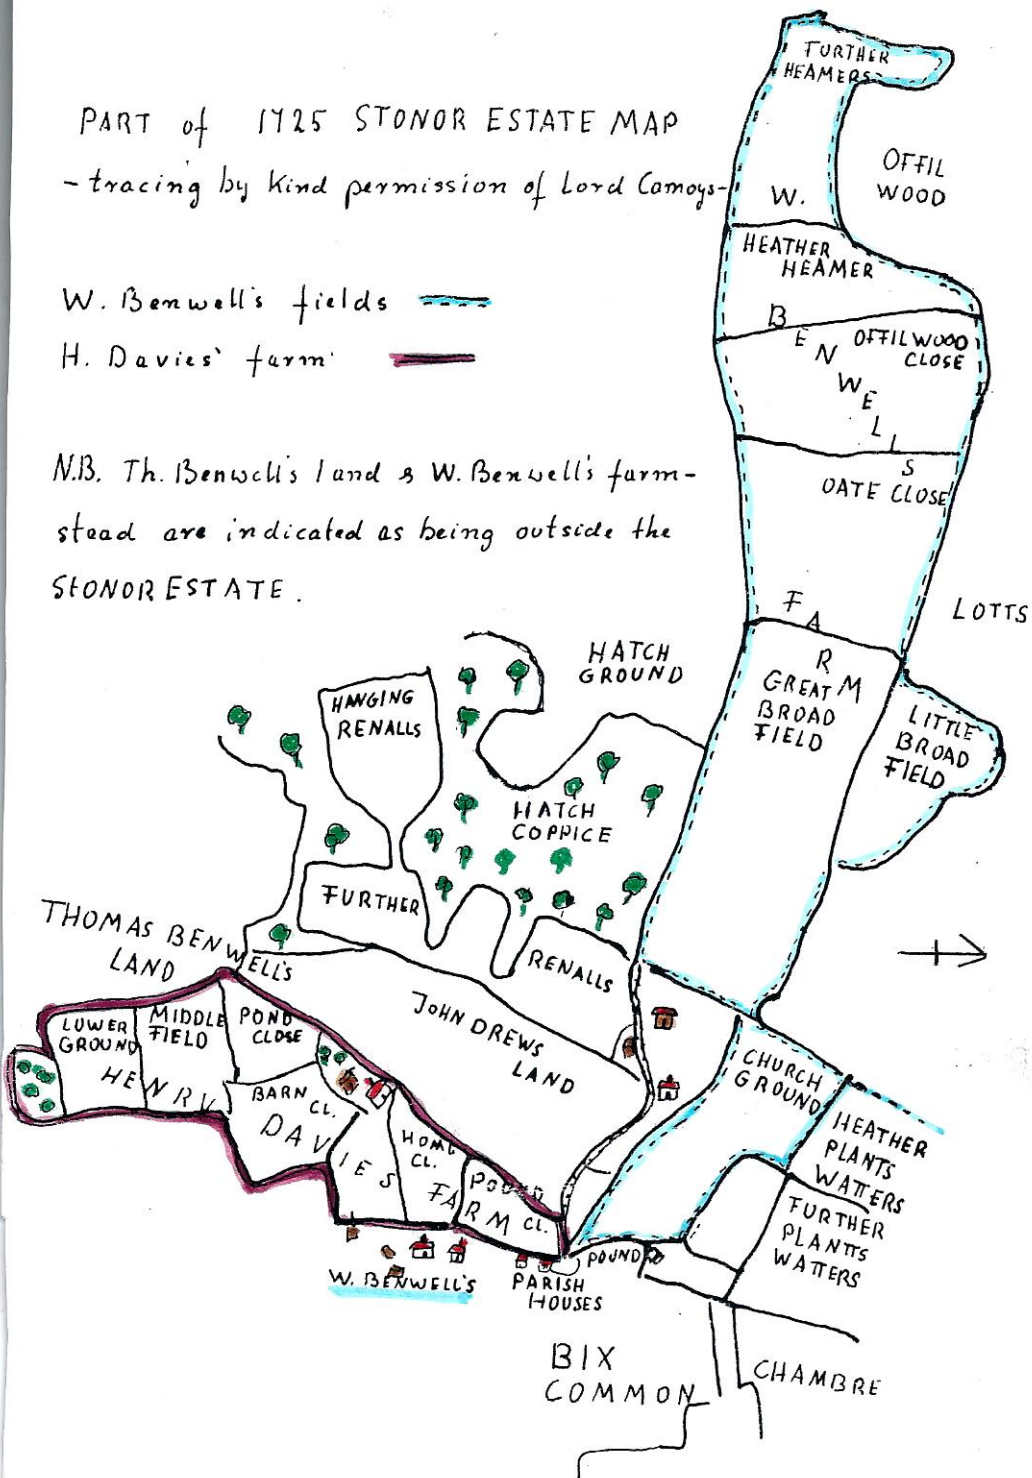 PART of 1725 STONOR ESTATE MAP
- tracing by kind permission of Lord Camoys -
W. Benwell's fields
H. Davies' farm
N.B. Th. Benwell's land & W. Benwell's farm-
stead are indicated as being outside the
STONOR ESTATE.
FURTHER
HEAMERS
OFFIL
WOOD
W.
HEATHER
HEAMER
BENWELLS
OFFILWOOD
CLOSE
OATE CLOSE
FARM
LOTTS
GREAT
BROAD
FIELD
LITTLE
BROAD
FIELD
HATCH
GROUND
HANGING
RENALLS
HATCH
COPPICE
FURTHER
RENALLS
THOMAS BENWELL'S
LAND
JOHN DREWS
LAND
LOWER
GROUND
MIDDLE
FIELD
POND
CLOSE
HENRY
BARN
CL.
DAVIES
HOME
CL.
FARM
POUND
CL.
CHURCH
GROUND
HEATHER
PLANTS
WATTERS
FURTHER
PLANTTS
WATTERS
POUND
W. BENWELL'S
PARISH
HOUSES
BIX
COMMON
CHAMBRE